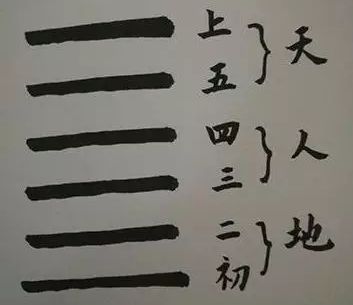 上
五 天
四
三 人
二
初 地